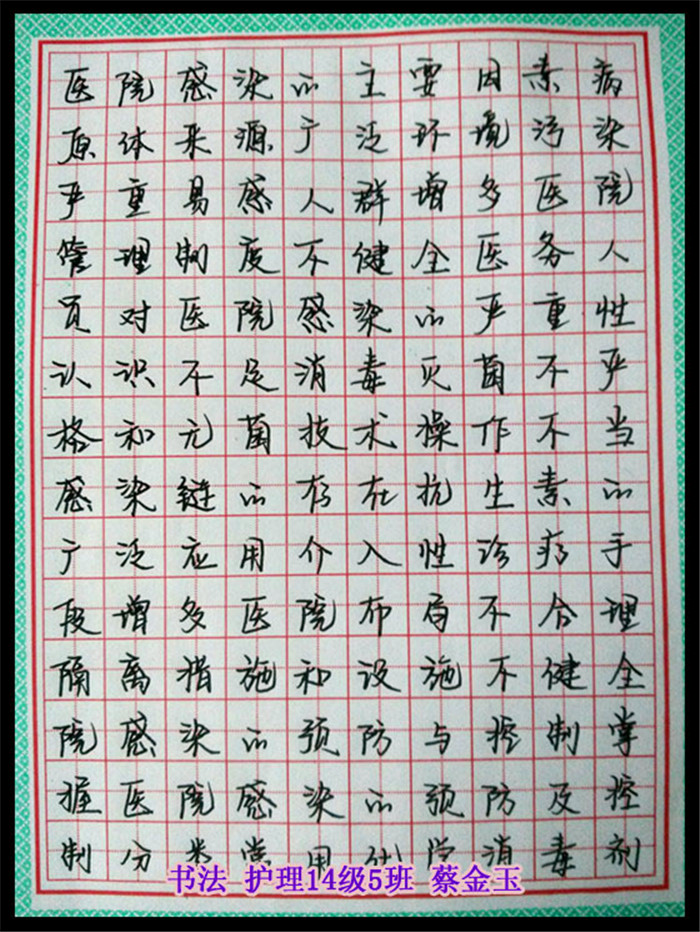 医院感染的主要因素病
原体来源广泛环境污染
严重易感人群增多医院
管理制度不健全医务人
员对医院感染的严重性
认识不足消毒灭菌不严
格和无菌技术操作不当
感染链的存在抗生素的
广泛应用介入性诊疗手
段增多医院布局不合理
隔离措施和设施不健全
院感染的预防与控制掌
握医院感染的预防及控
制分类常用化学消毒剂
书法 护理14级5班 蔡金玉